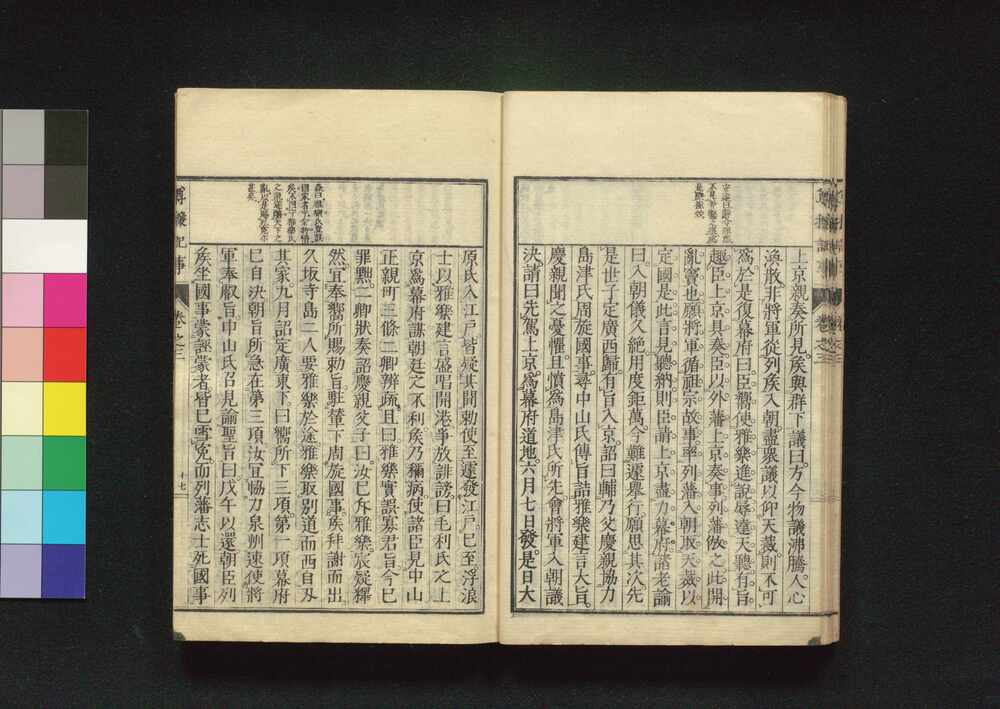 上京親奏所見矦與群下議曰方今物議沸騰人心
渙散非將軍從列矦入朝盡衆議以仰天裁則不可
爲於是復幕府曰臣嚮使雅樂進説辱達天聽有旨
趣臣上京具奏臣以外藩上京奏事列藩傚之此開
亂竇也願將軍循祖宗故事率列藩入朝取天裁以
定國是此言見聽納則臣請上京盡力幕府諸老諭
曰入朝儀久絶用度鉅萬今難遽擧行願思其次先
是世子定廣西歸有旨入京詔曰輔乃父慶親協力
島津氏周旋國事尋中山氏傳旨詰雅樂建言大旨
慶親聞之憂懼且憤爲島津氏所先會將軍入朝議
決請曰先駕上京爲幕府道地六月七日發是日大
原氏入江戸皆疑其聞勅使至遽發江戸已至浮浪
士以雅樂建言盛唱開港爭放誹謗曰毛利氏之上
京爲幕府謀朝廷之不利矦乃稱病使諸臣見中山
正親町三條二卿辨疏且曰雅樂實誤寡君旨今已
罪黜二卿狀奏詔慶親父子曰汝已斥雅樂宸疑釋
然宜奉嚮所賜勅旨駐輦下周旋國事矦拜謝而出
久坂寺島二人要雅樂於途雅樂取別道而西自刄
其家九月詔定廣東下曰嚮所下三項第一項幕府
已自決朝旨所急在第三項汝宜恊力泉州速使將
軍奉叡旨中山氏召見諭聖旨曰戊午以還朝臣列
矦坐國事蒙誣蒙者皆已雪寃而列藩志士死國事
尊攘紀事
卷之三
十七